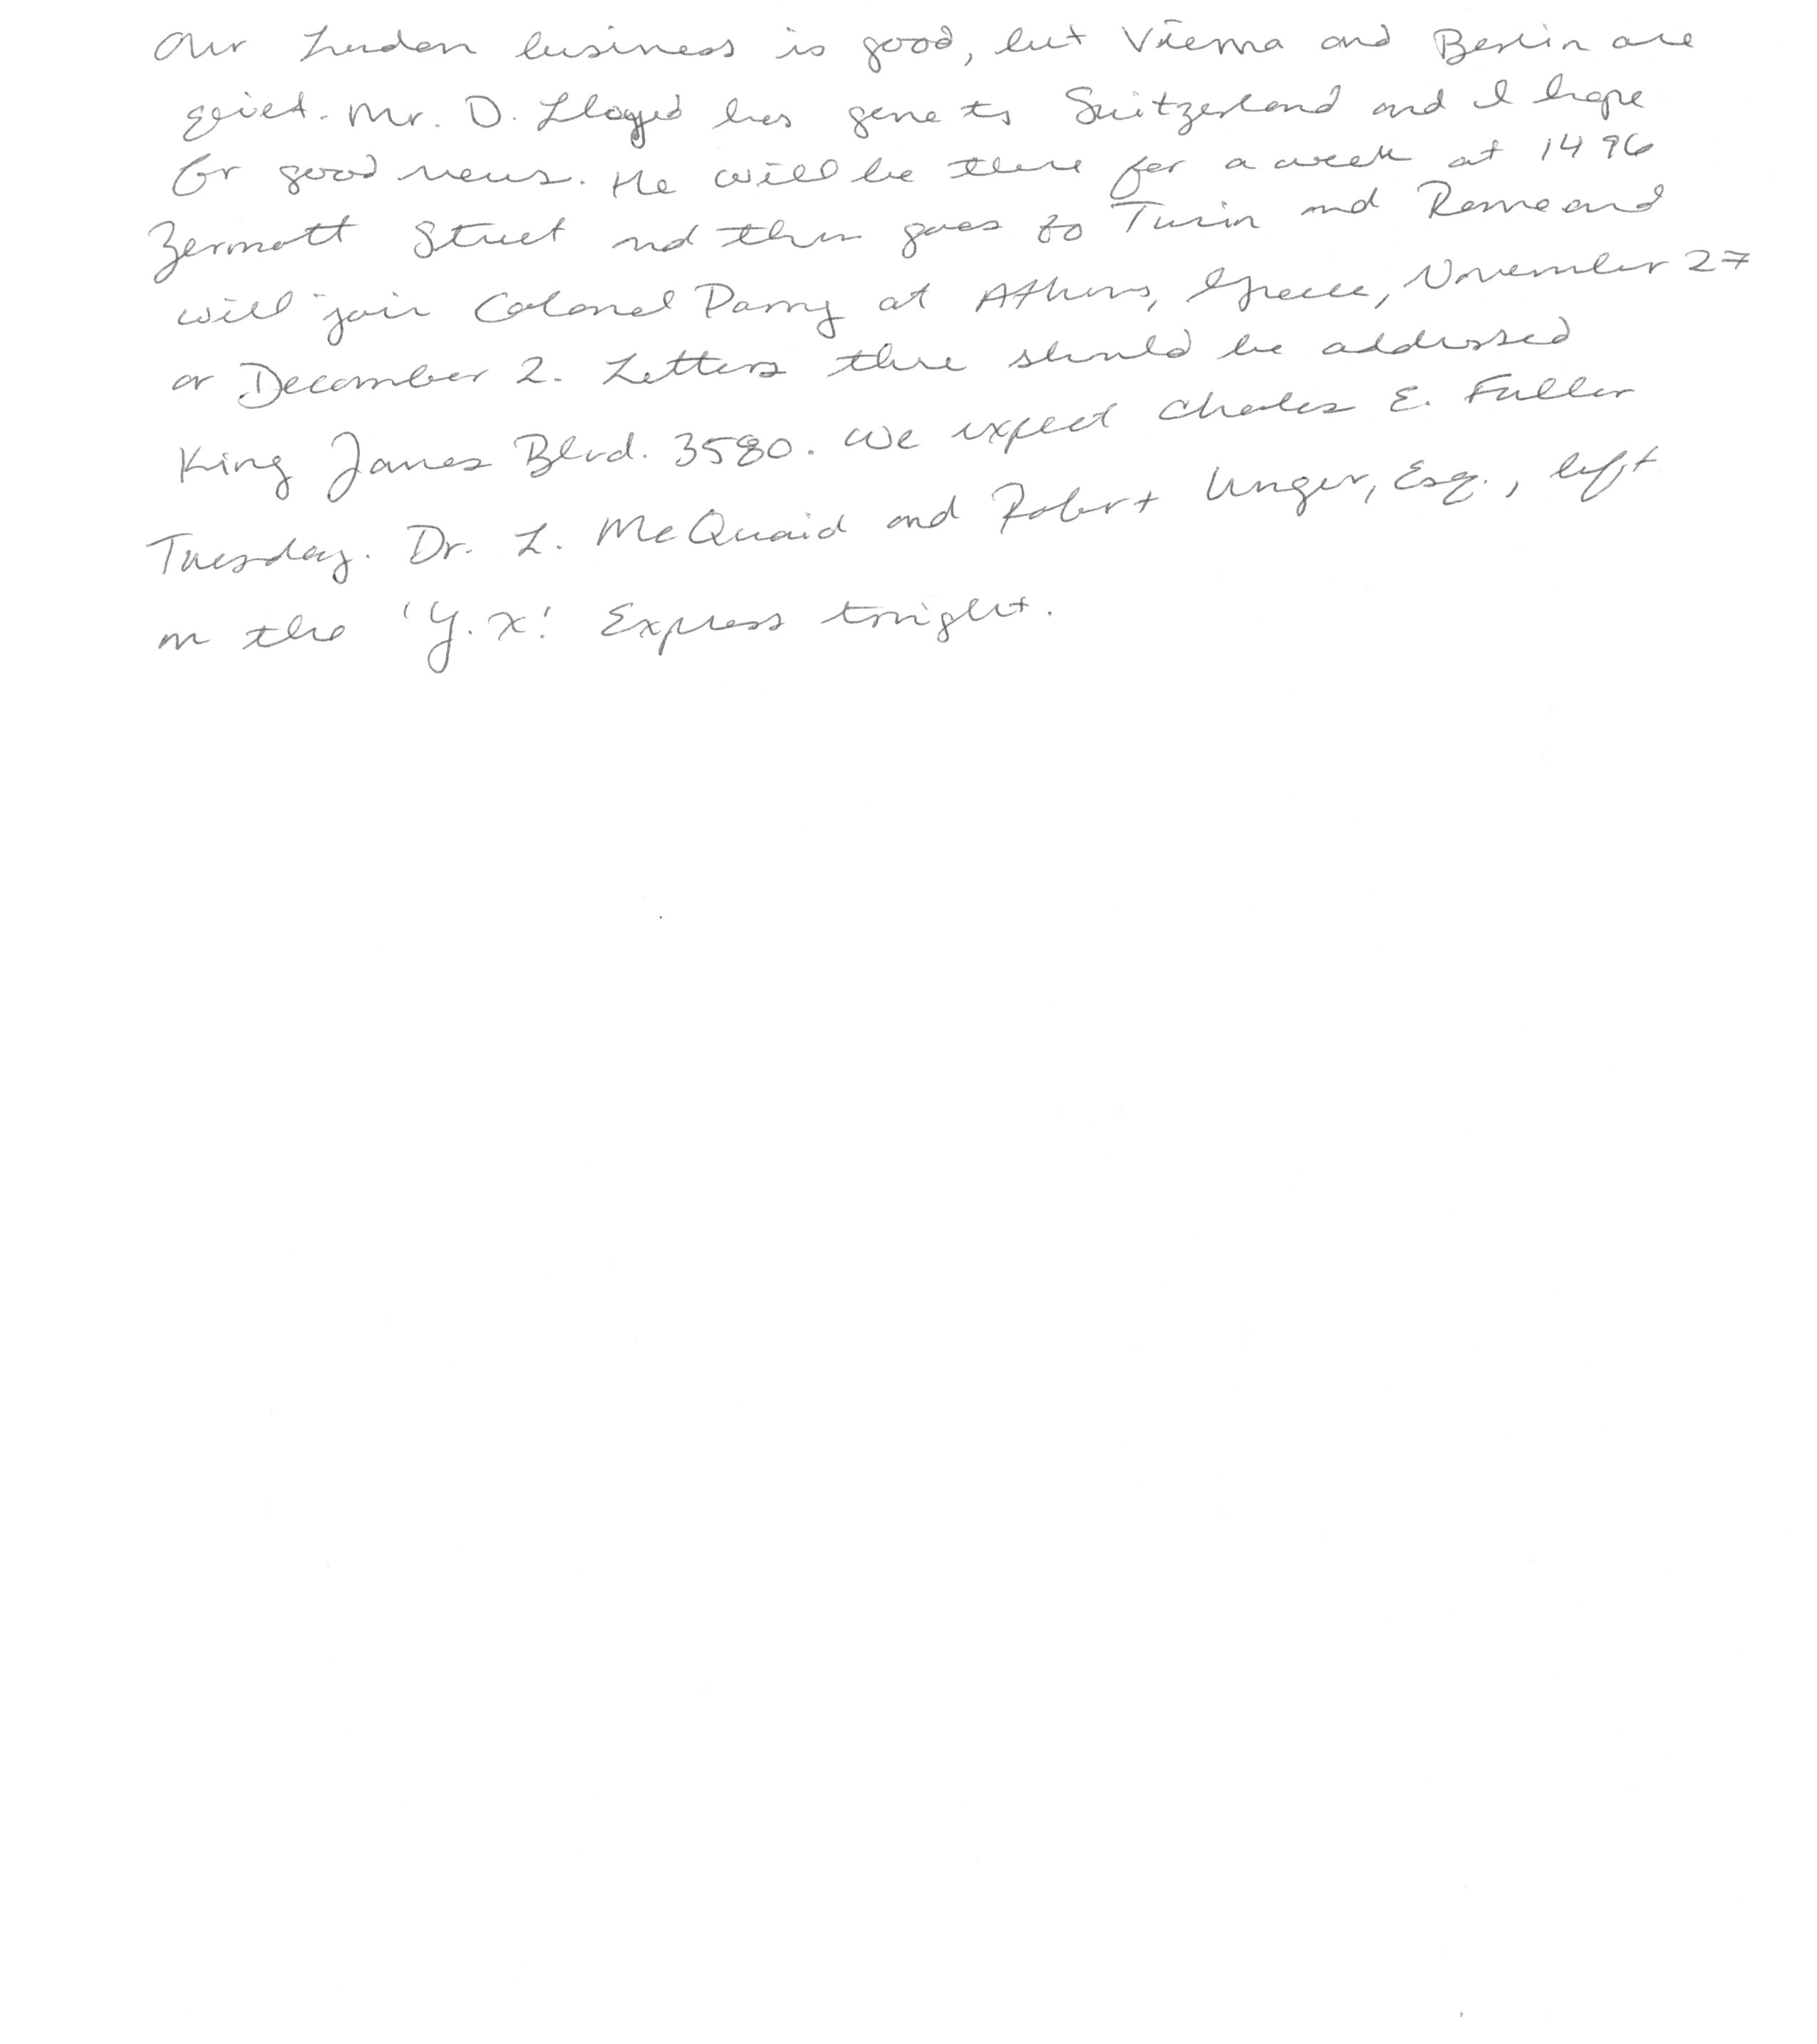 Our London business is good, but Vienna and Berlin are
quiet. Mr. D. Lloyd has gone to Switzerland and I hope
for good news. He will be there for a week at 1496
Zermott Street and then goes to Turin and Rome and
will join Colonel Parry at Athens, Greece, November 27
or December 2. Letters there should be addressed
King James Blvd. 3580. We expect Charles E. Fuller
Tuesday. Dr. L. McQuaid and Robert Unger, Esq., left
on the 'Y.X.' Express tonight.